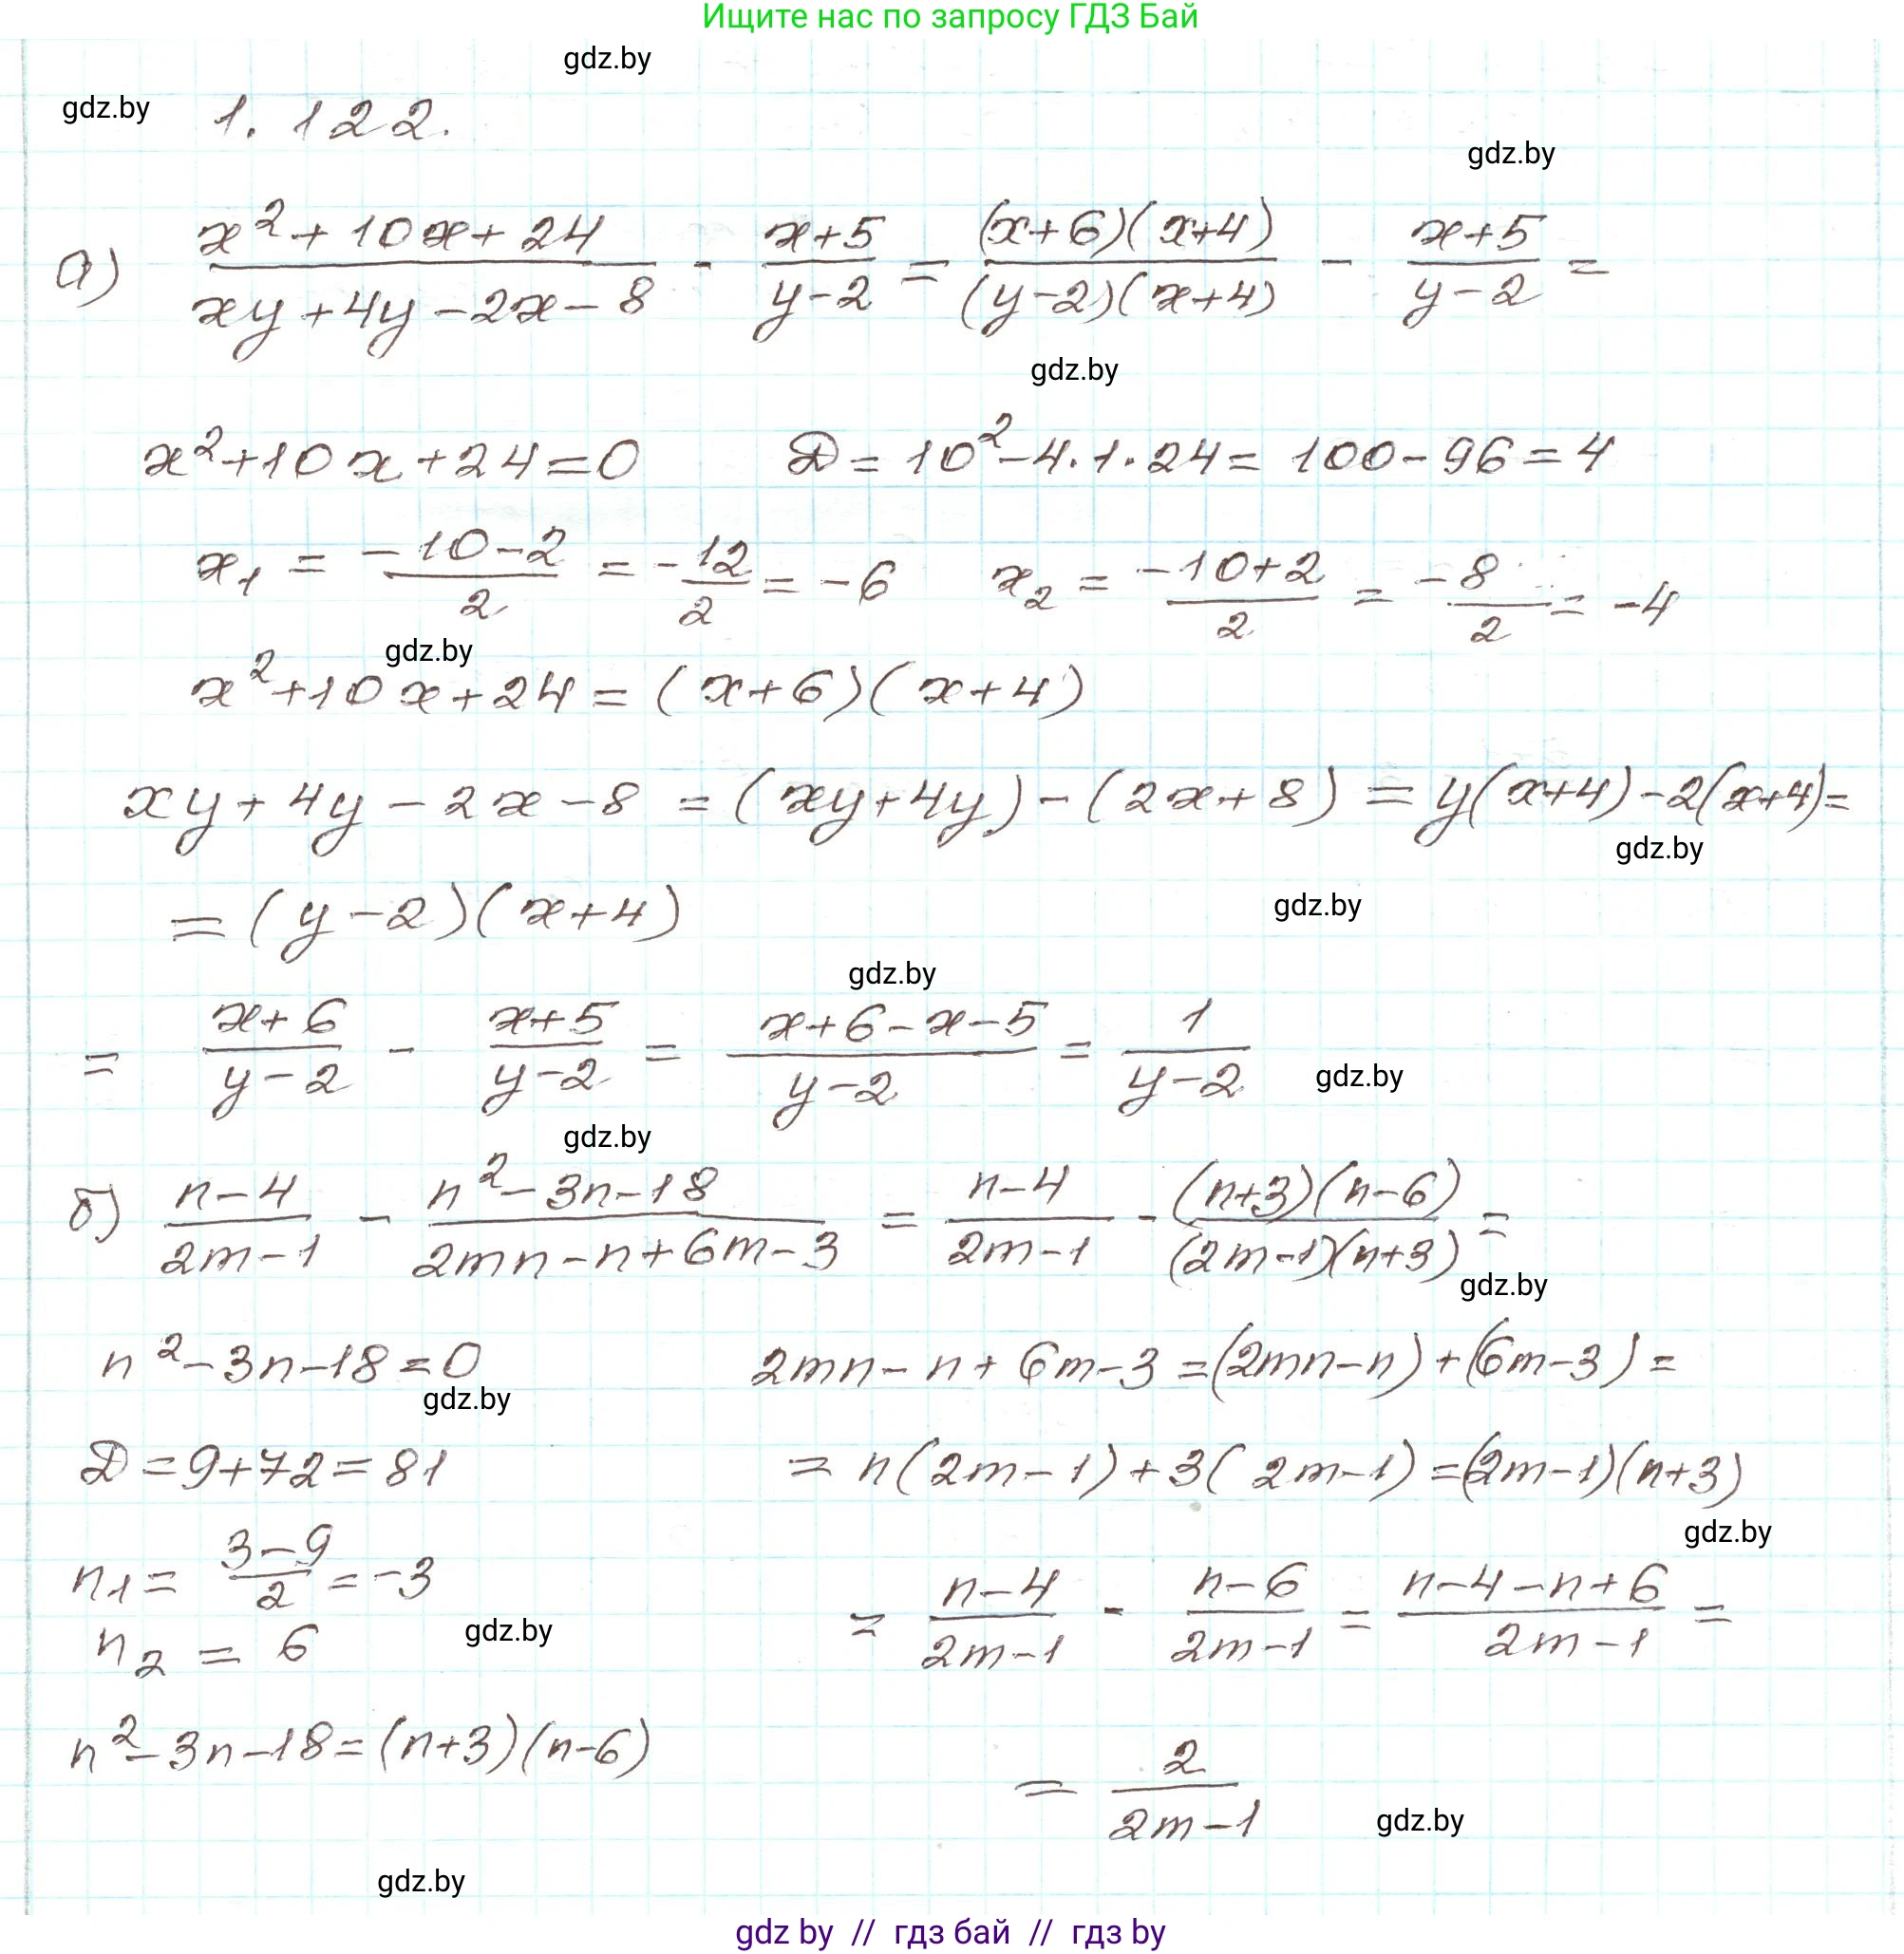 Ищите нас по запросу ГДЗ Бай
gdz.by
gdz.by 1.122.
gdz.by
а) (x²+10x+24)/(xy+4y-2x-8) - (x+5)/(y-2) = ((x+6)(x+4))/((y-2)(x+4)) - (x+5)/(y-2) =
gdz.by
x²+10x+24=0 D=10²-4·1·24=100-96=4
x₁ = (-10-2)/2 = -12/2 = -6 x₂ = (-10+2)/2 = -8/2 = -4
gdz.by
x²+10x+24=(x+6)(x+4)
xy+4y-2x-8=(xy+4y)-(2x+8)=y(x+4)-2(x+4)=
gdz.by
=(y-2)(x+4)
gdz.by
gdz.by
= (x+6)/(y-2) - (x+5)/(y-2) = (x+6-x-5)/(y-2) = 1/(y-2)
gdz.by
gdz.by
б) (n-4)/(2m-1) - (n²-3n-18)/(2mn-n+6m-3) = (n-4)/(2m-1) - ((n+3)(n-6))/((2m-1)(n+3)) =
gdz.by
n²-3n-18=0 2mn-n+6m-3=(2mn-n)+(6m-3)=
gdz.by
D=9+72=81 =n(2m-1)+3(2m-1)=(2m-1)(n+3)
gdz.by
n₁ = (3-9)/2 = -3 = (n-4)/(2m-1) - (n-6)/(2m-1) = (n-4-n+6)/(2m-1) =
n₂ = 6
gdz.by
n²-3n-18=(n+3)(n-6) = 2/(2m-1)
gdz.by
gdz.by
gdz by // гдз бай // гдз by